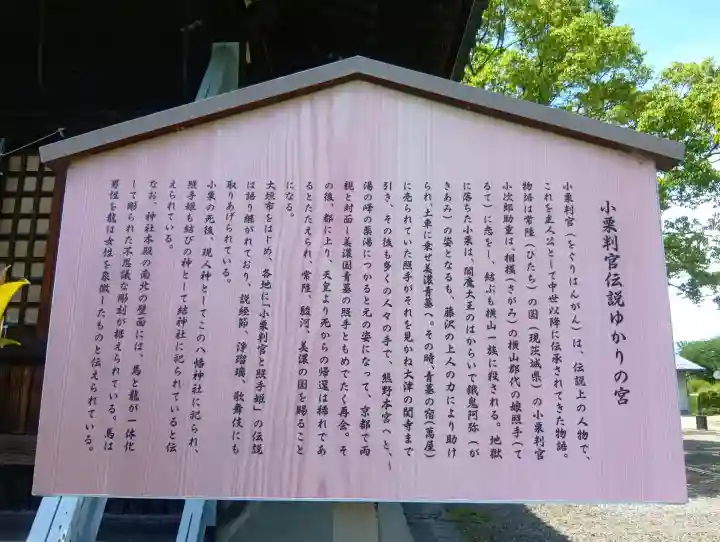 小栗判官伝説ゆかりの宮
小栗判官(をぐりはんがん)は、伝説上の人物で、
これを主人公として中世以降に伝承されてきた物語。
物語は常陸(ひたち)の国(現茨城県)の小栗判官
小次郎助重は、相模(さがみ)の横山郡代の娘照手(て
るて)に恋をし、結ぶも横山一族に殺される。地獄
に落ちた小栗は、閻魔大王のはからいで餓鬼阿弥(が
きあみ)の姿となるも、藤沢の上人の力により助け
られ、土車に乗せ美濃青墓へ。その時、青墓の宿(萬屋)
に売られていた照手がそれを見かね大津の関寺まで
引き、その後も多くの人々の手で、熊野本宮へと、
湯の峰の薬湯につかると元の姿になって、京都で両
親と対面し美濃国青墓の照手ともめでたく再会。そ
の後、都に上り、天皇より死からの帰還は稀れであ
るとたたえられ、常陸、駿河、美濃の国を賜ること
になる。
大垣市をはじめ、各地に「小栗判官と照手姫」の伝説
は語り継がれており、説経節、浄瑠璃、歌舞伎にも
取りあげられている。
小栗の死後、現人神としてこの八幡神社に祀られ、
照手姫も結びの神として結神社に祀られていると伝
えられている。
なお、神社本殿の南北の壁面には、馬と龍が一体化
して彫られた不思議な彫刻が据えられている。馬は
男性を龍は女性を象徴したものと伝えられている。